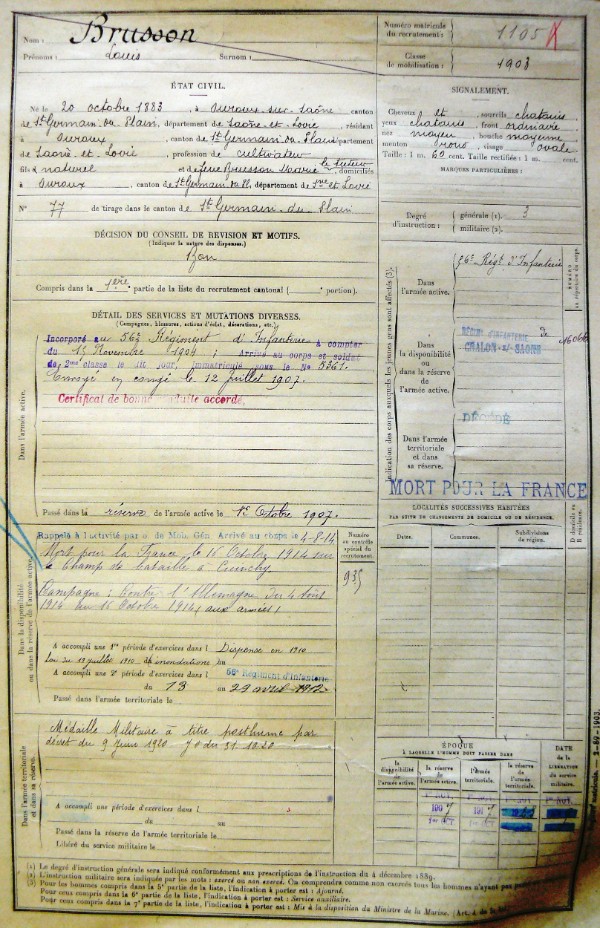 Nom : Brusson
Prénoms : Louis Surnom :
Numéro matricule du recrutement : 1105
Classe de mobilisation : 1903
ÉTAT CIVIL.
Né le 20 octobre 1883, à Ouroux-sur-Saône canton
de St Germain-du-Plain, département de Saône-et-Loire, résidant
à Ouroux, canton de St Germain du Plain département
de Saône-et-Loire, profession de cultivateur
fils naturel et de Brusson Marie le tuteur domiciliés
à Ouroux, canton de St Germain, département de Sne et Loire
N° 77 de tirage dans le canton de St Germain-du-Plain
SIGNALEMENT.
Cheveux et sourcils chatains
yeux chatains front ordinaire
nez moyen bouche moyenne
menton rond visage ovale
Taille : 1 m. 60 cent. Taille rectifiée : 1 m. cent.
MARQUES PARTICULIÈRES :
Degré d'instruction :
générale (1). 3
militaire (2).
DÉCISION DU CONSEIL DE REVISION ET MOTIFS.
(Indiquer la nature des dispenses.)
Bon
Compris dans la 1ère partie de la liste du recrutement cantonal ( portion).
DÉTAIL DES SERVICES ET MUTATIONS DIVERSES.
(Campagnes, blessures, actions d'éclat, décorations, etc.)
Dans l'armée active.
Incorporé au 56e Régiment d'Infanterie à compter
du 15 Novembre 1904 ; Arrivé au corps et soldat
de 2me classe le dit jour, immatriculé sous le N° 5361.
Envoyé en congé le 12 juillet 1907.
Certificat de bonne conduite accordé.
Passé dans la réserve de l'armée active le 1er Octobre 1907.
Indication des corps auxquels les jeunes gens sont affectés (3).
Dans l'armée active.
56e Régt d'Infanterie
Dans la disponibilité ou dans la réserve de l'armée active.
RÉGIMT D'INFANTERIE de
CHALON-s/-SAONE
DÉCÉDÉ
Dans l'armée territoriale et dans sa réserve.
MORT POUR LA FRANCE
LOCALITÉS SUCCESSIVES HABITÉES
PAR SUITE DE CHANGEMENTS DE DOMICILE OU DE RÉSIDENCE.
Dates. Communes. Subdivisions de région. D domicile ou R résidence.
Dans la disponibilité ou dans la réserve de l'armée active.
Rappelé à l'activité par de Mob. Gén. Arrivé au corps le 4-8-14
Mort pour la France le 16 Octobre 1914 sur
le Champ de bataille à Cuinchy.
Campagne : Contre l'Allemagne du 4 août
1914 au 16 Octobre 1914 (aux armées)
Numéro au contrôle spécial du recrutement.
935
A accompli une 1re période d'exercices dans l Dispensé en 1910
Loi du juillet 1910 inondations du
A accompli une 2e période d'exercices dans l 56e Régiment d'Infanterie
du 13 au 29 avril 1912
Passé dans l'armée territoriale le
Dans l'armée territoriale et dans sa réserve.
Médaille Militaire à titre posthume par
décret du 9 Juin 1920 J.O du 31.10.20
A accompli une période d'exercices dans l
du au
Passé dans la réserve de l'armée territoriale le
Libéré du service militaire le
ÉPOQUE
À LAQUELLE L'HOMME DOIT PASSER DANS
la disponibilité de l'armée active. la réserve de l'armée active. l'armée territoriale. la réserve de l'armée territoriale.
DATE de la LIBÉRATION du service militaire.
(1) Le degré d'instruction générale sera indiqué conformément aux prescriptions de l'instruction du 4 décembre 1889.
(2) L'instruction militaire sera indiquée par les mots : exercé ou non exercé. On comprendra comme non exercés tous les hommes n'ayant pas
(3) Pour les hommes compris dans la 5e partie de la liste, l'indication à porter est : Ajourné.
Pour ceux compris dans la 6e partie de la liste, l'indication à porter est : Service auxiliaire.
Pour ceux compris dans la 7e partie de la liste, l'indication à porter est : Mis à la disposition du Ministre de la Marine.